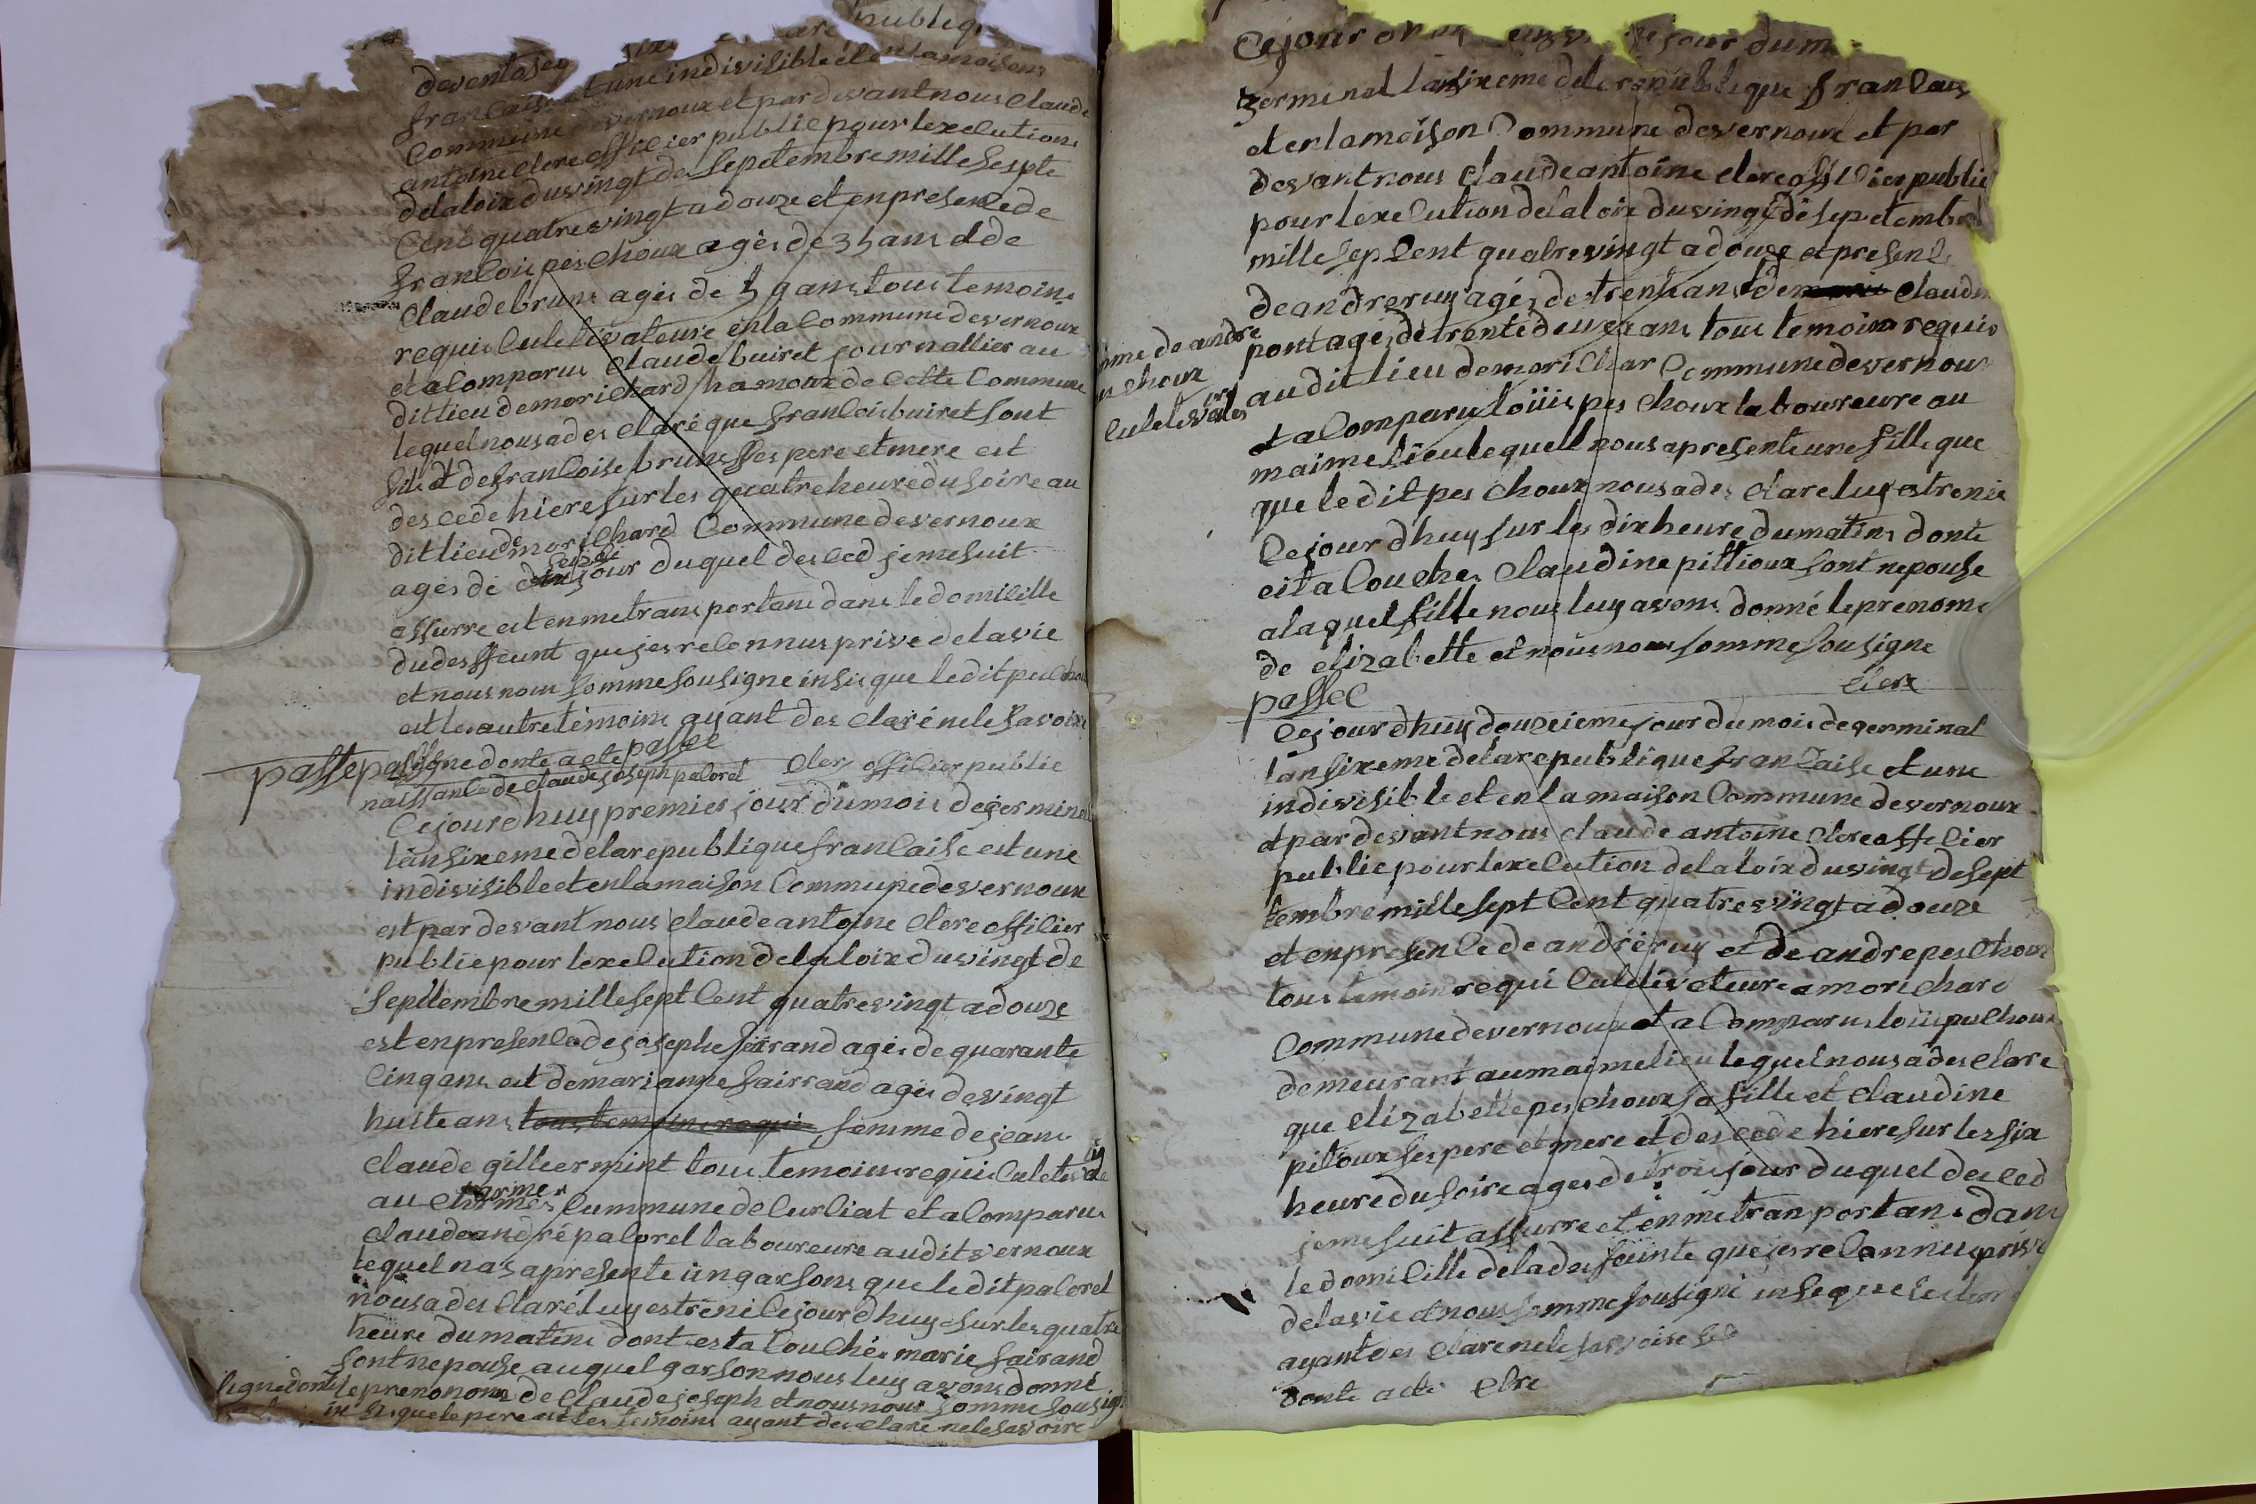 publiq
deventose
francaise et une indivisible et en la maison
Commune devernoux et pardevant nous Claude
antoine clere officier public pour lexecution
delaloix duvingt de Sepetembre mille Sespte
Cent quatrevingt a douze et enpresence de
francois peschoux agés de 35 ans et de
Claude brune agés de 59 ans tous temoins
requis Culetivateure enla Commune devernoux
et a Comparus Claude buiret journallier au
dit lieu de morichard hamoux de Cette Commune
lequel nous a des claré que francois buiret sont
fils et de francoise brune ses pere et mere est
des cede hiere sur les quatre heure du soire au
dit lieu de morichard Commune de vernoux
agés de jour duquel des ced je me suit
assurre est en me trans portans dans le domicille
du desffeunt que jes reconnus prive de la vie
et nous nous somme sousigne insi que le dit peschou
est les autre témoins ayant des claré ne le savoire
signe donte acte passee
passe
Clere officier public
naissance de claude joseph pacorel
Cejourdhuy premier jour du mois de germinal
lan sixeme delarepublique francaise est une
indivisible et en la maison Commune de vernoux
est par devant nous claude antoine clere officier
public pour lexecution de la loix du vingt de
Septtembre mille sept Cent quatrevingt a douze
est en presence de joseph fairand agés de quarante
Cinq ans est de marianne fairrand agés de vingt
huite ans tous temoins requis femme de jean
claude gilliermint tous temoins requis Culetiv
au charme Cummune de Curciat et a Comparus
Claude andré pacorel laboureure au dit vernoux
lequel nas apresente un garsons que le dit pacorel
nous a des claré luy estreni ce jour dhuy sur les quatre
heure du matins dont est a Couchée marie fairand
sont nepouse auquel garson nous luy avons donné
le prenonom de claude joseph et nous nous somme sousig
insi que le pere et les temoins ayant des clare ne le savoire
signe donte
Cejour jour du m
germinal lan sixeme dela republique francais
et en la maison Commune de vernoux et par
devant nous claude antoine clere officier public
pour lexecution de la loix du vingt de sepetembre
mille sep Cent quatrevingt a douze et presence
de andre ruy agés de trente ans et de claude
pont agés de trente deux ans tous temoins requis
au dit lieu de morichar Commune de vernoux
et a Comparu loüis peschoux laboureure au
maime lieu lequell nous a presente une fille que
que le dit pes choux nous a des clare luy estrenie
Cejour dhuy sur les dix heure du matins donte
eit a Couches Claudine pittioux sont nepouse
alaquel fille nous luy avons donné le prenome
de elizabette et nous nous somme sousigne
passee
clere
me de andre
choux
Culetivates
Cejour dhuy douzeieme jour du mois de germinal
lan sixeme de la republique francaise et une
indivisible et en la maison Commune de vernoux
et par devant nous claude antoine clere officier
public pour lexecution de la loix du vingt de sept
tembre mille sept Cent quatrevingt a douze
et enpresence de andré ruy et de andre peschoux
tous temoins requi Culetivateure a morichard
Commune de vernoux et a Comparus loüis peschoux
demeurant au maime lieu lequel nous a des clare
que elizabette peschoux sa fille et claudine
pitoux ses pere et mere et des cede hiere sur les six
heure du soire ages de trois jour duquel des ced
je me suit assurre et en me tran portans dans
le domicille de la des feunte que jes reconnus prive
de la vie et nous somme sousigné insi que
ayant des clare ne le savoire
donte acte clre